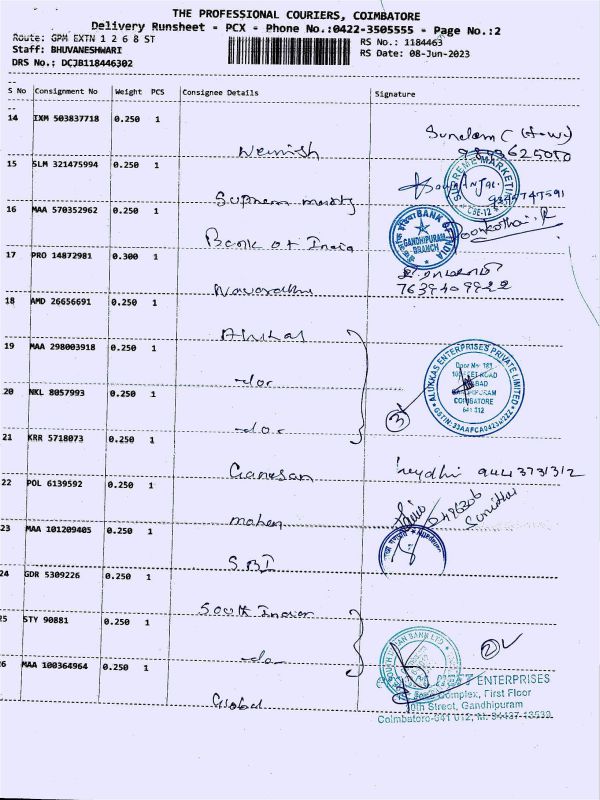 THE PROFESSIONAL COURIERS, COIMBATORE
Delivery Runsheet - PCX - Phone No.:0422-3505555 - Page No.:2
Route: GPM EXTN 1 2 6 8 ST
RS No.: 1184463
Staff: BHUVANESHWARI
RS Date: 08-Jun-2023
DRS No.: DCJB118446302
S No Consignment No Weight PCS Consignee Details Signature
14 IXM 503837718 0.250 1
Nemish
15 SLM 321475994 0.250 1
SUPREME MARKETI
CBE-12
Suprem
16 MAA 570352962 0.250 1
BANK OF INDIA
GANDHIPURAM
BRANCH
Bank of India
17 PRO 14872981 0.300 1
7639409922
18 AMD 26656691 0.250 1
19 MAA 298003918 0.250 1
-do-
ALUKKAS ENTERPRISES PRIVATE LIMITED
COIMBATORE
641 012
3
20 NKL 8057993 0.250 1
-do-
21 KRR 5718073 0.250 1
Ganesan 9443731312
22 POL 6139592 0.250 1
mohan
23 MAA 101209405 0.250 1
SBI
24 GDR 5309226 0.250 1
South Indian
25 STY 90881 0.250 1
-do-
2
26 MAA 100364964 0.250 1
Global
ENTERPRISES
Complex, First Floor
10th Street, Gandhipuram
Coimbatore-641 012, M: 94437-13539